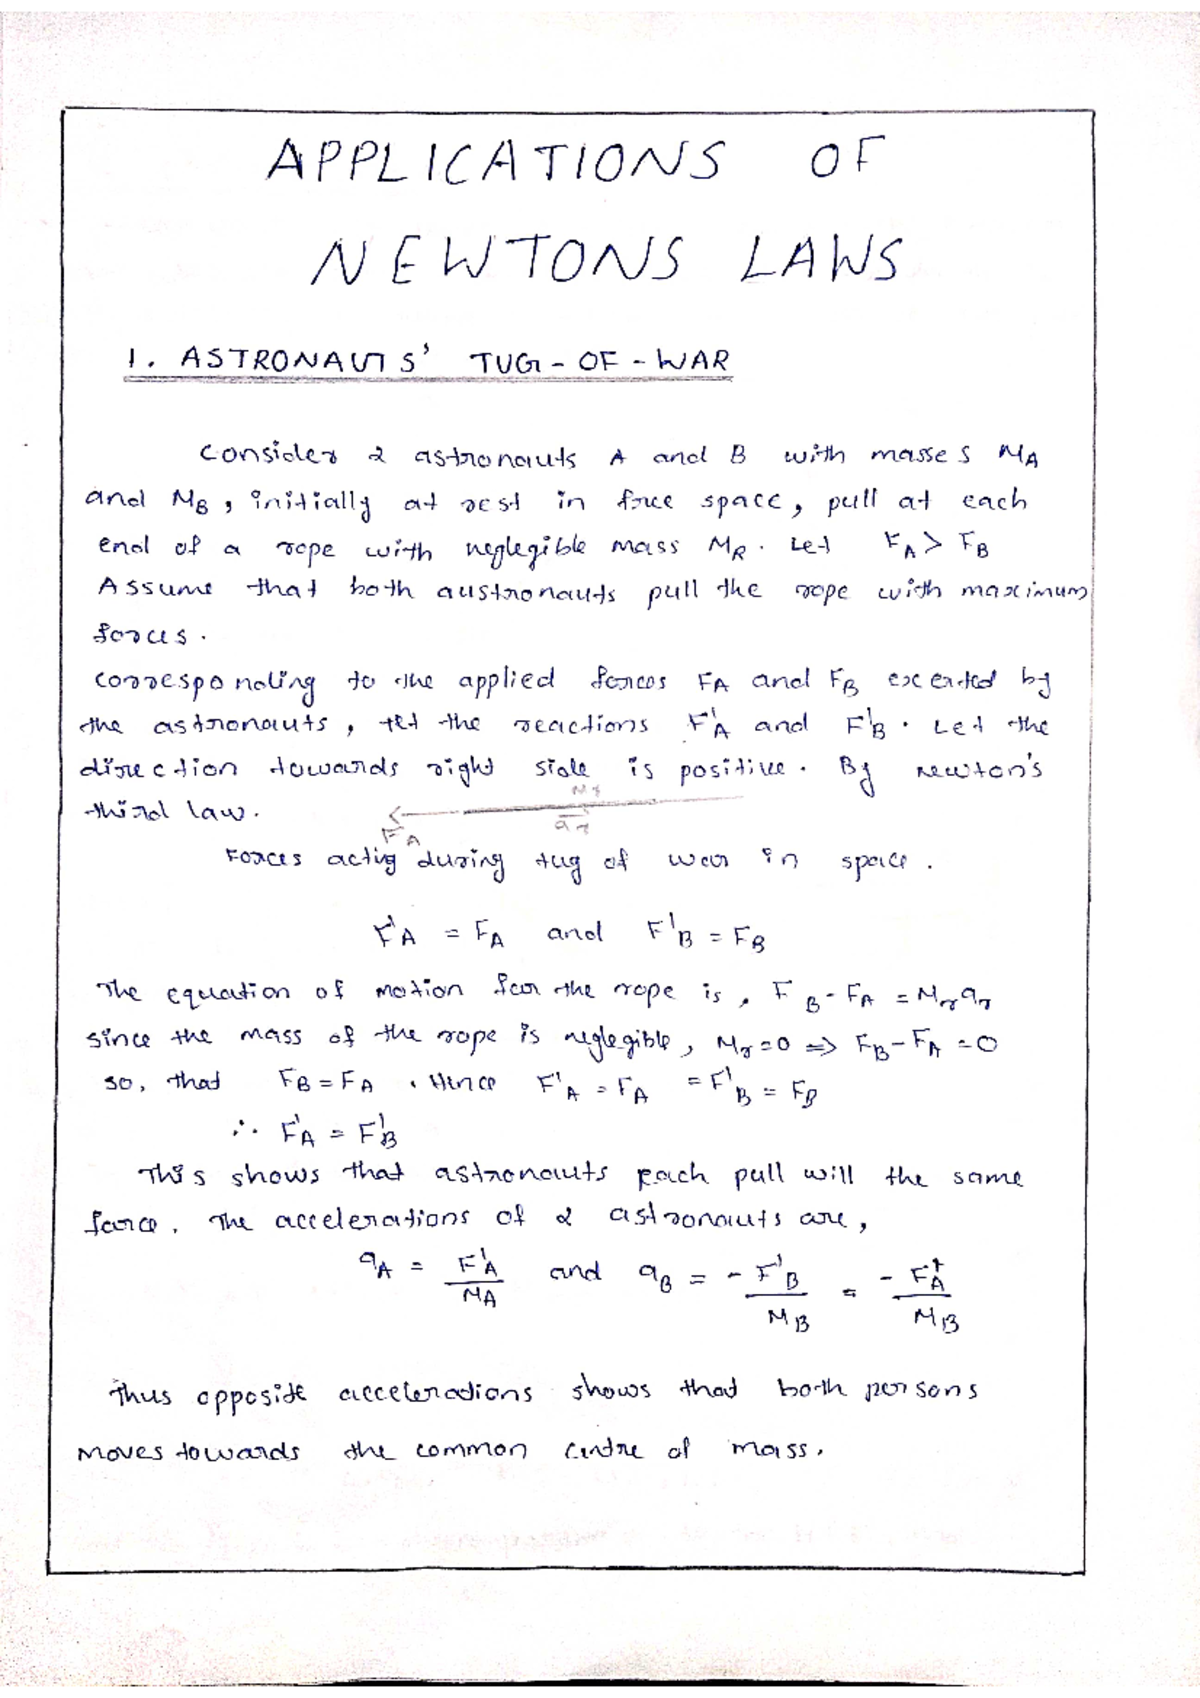 APPLICATIONS OF
NEWTONS LAWS
1. ASTRONAUTS' TUG-OF-WAR
Consider 2 astronauts A and B with masses MA
and MB, initially at rest in free space, pull at each
end of a rope with neglegible mass MR. Let FA > FB
Assume that both austronauts pull the rope with maximum
forces.
corresponding to the applied forces FA and FB excerted by
the astronauts, let the reactions F'A and F'B. Let the
direction towards right side is positive. By Newton's
third law.
Mr
ar
FA
Forces actig during tug of war in space.
F'A = FA and F'B = FB
The equation of motion for the rope is, FB - FA = Mr ar
since the mass of the rope is neglegible, Mr=0 => FB-FA=0
so, that FB = FA. Hence F'A = FA = F'B = FB
∴ F'A = F'B
This shows that astronauts each pull will the same
force. The accelerations of 2 astronauts are,
aA = F'A/MA and aB = -F'B/MB = -F'A/MB
Thus opposite accelerations shows that both persons
moves towards the common centre of mass.